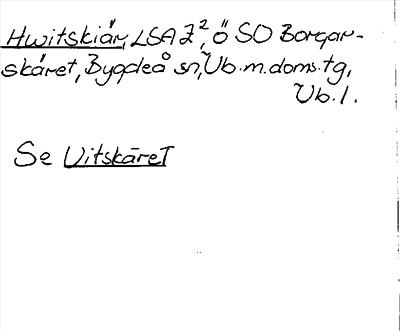 Hwitskiär, LSA Z², ö SO Borgar-
skäret, Bygdeå sn, Vb. m. doms. tg,
Vb. l.
Se Vitskäret